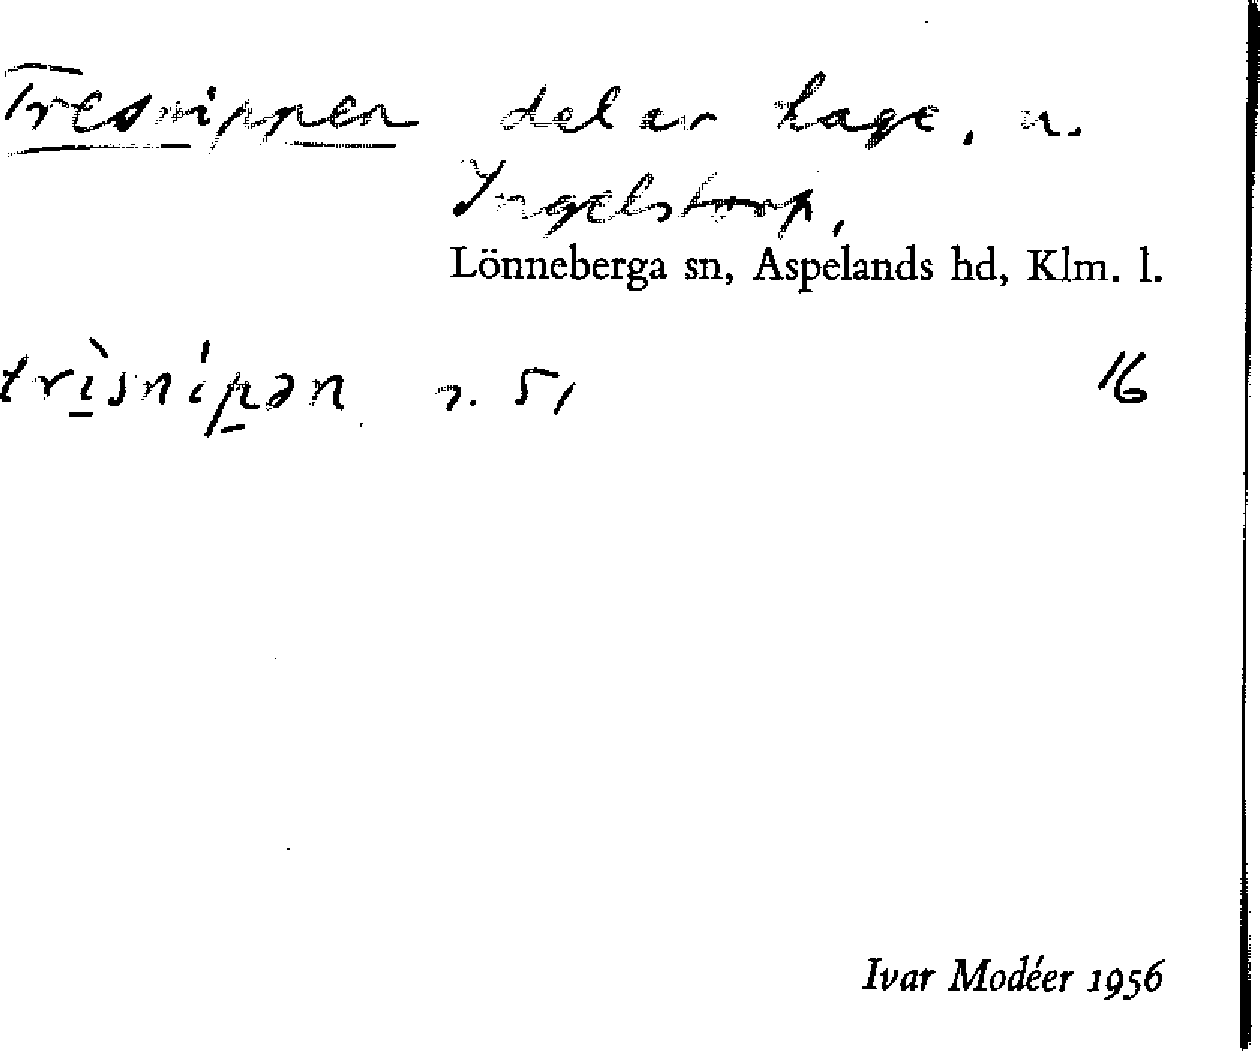 Tresnippen del av hage, n.
Ingelstorp,
Lönneberga sn, Aspelands hd, Klm. l.
trìsnípən n. 51 16
Ivar Modéer 1956